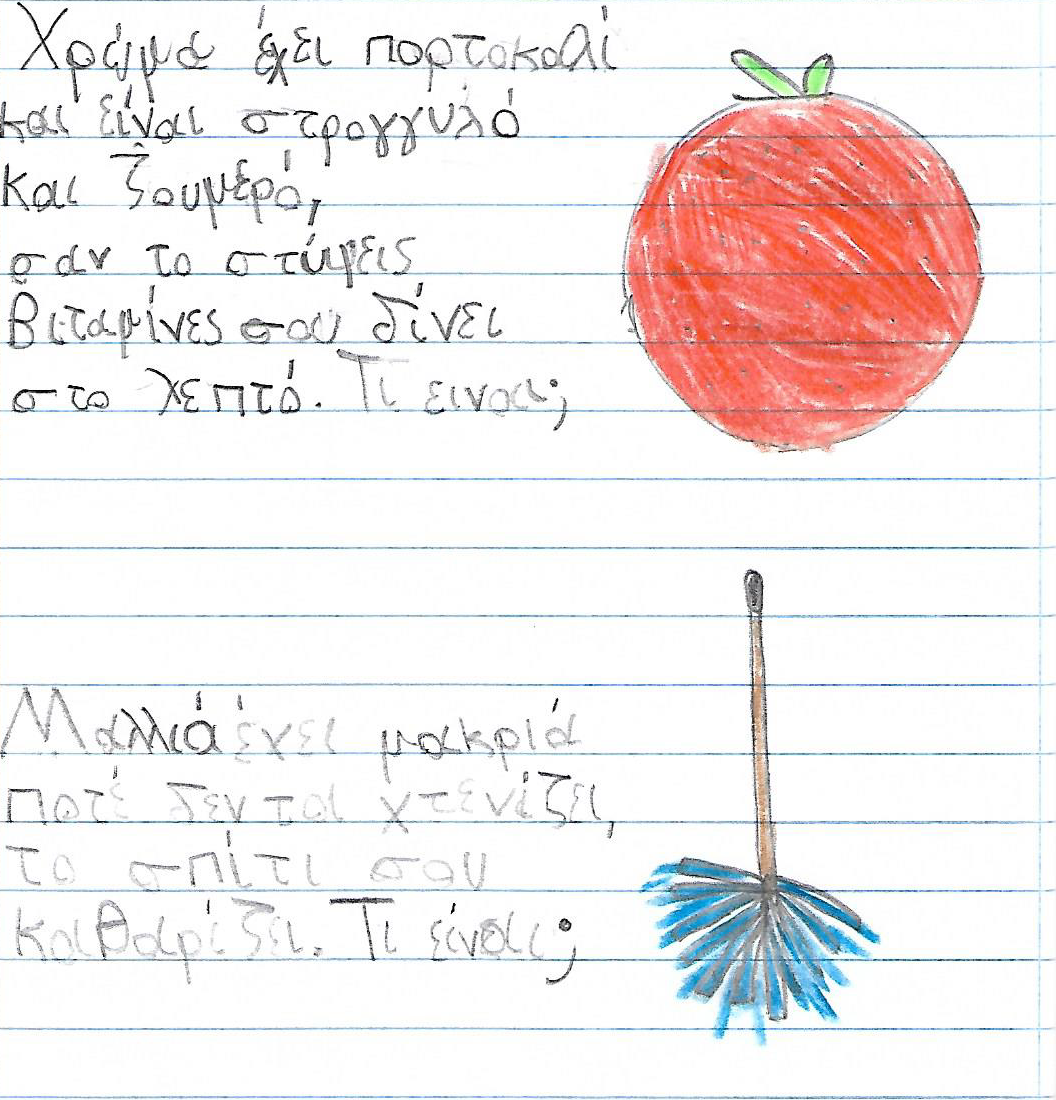 Χρώμα έχει πορτοκαλί
και είναι στρογγυλό
και ζουμερό,
σαν το στύψεις
Βιταμίνες σου δίνει
στο λεπτό. Τι ειναι;
Μαλλιά έχει μακριά
ποτέ δεν τα χτενίζει,
το σπίτι σου
καθαρίζει. Τι είναι;